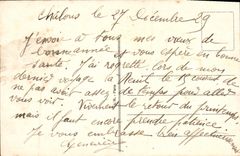 Châlons le 27 Décembre 29
J'envoie à tous mes vœux de
bonne année et vous espère en bonne
santé. J'ai regretté lors de mon
dernier voyage la le 15 août de
ne pas avoir assez de temps pour aller
vous voir. Vivement le retour du printemps
mais il faut encore prendre patience
Je vous embrasse bien affectueusement